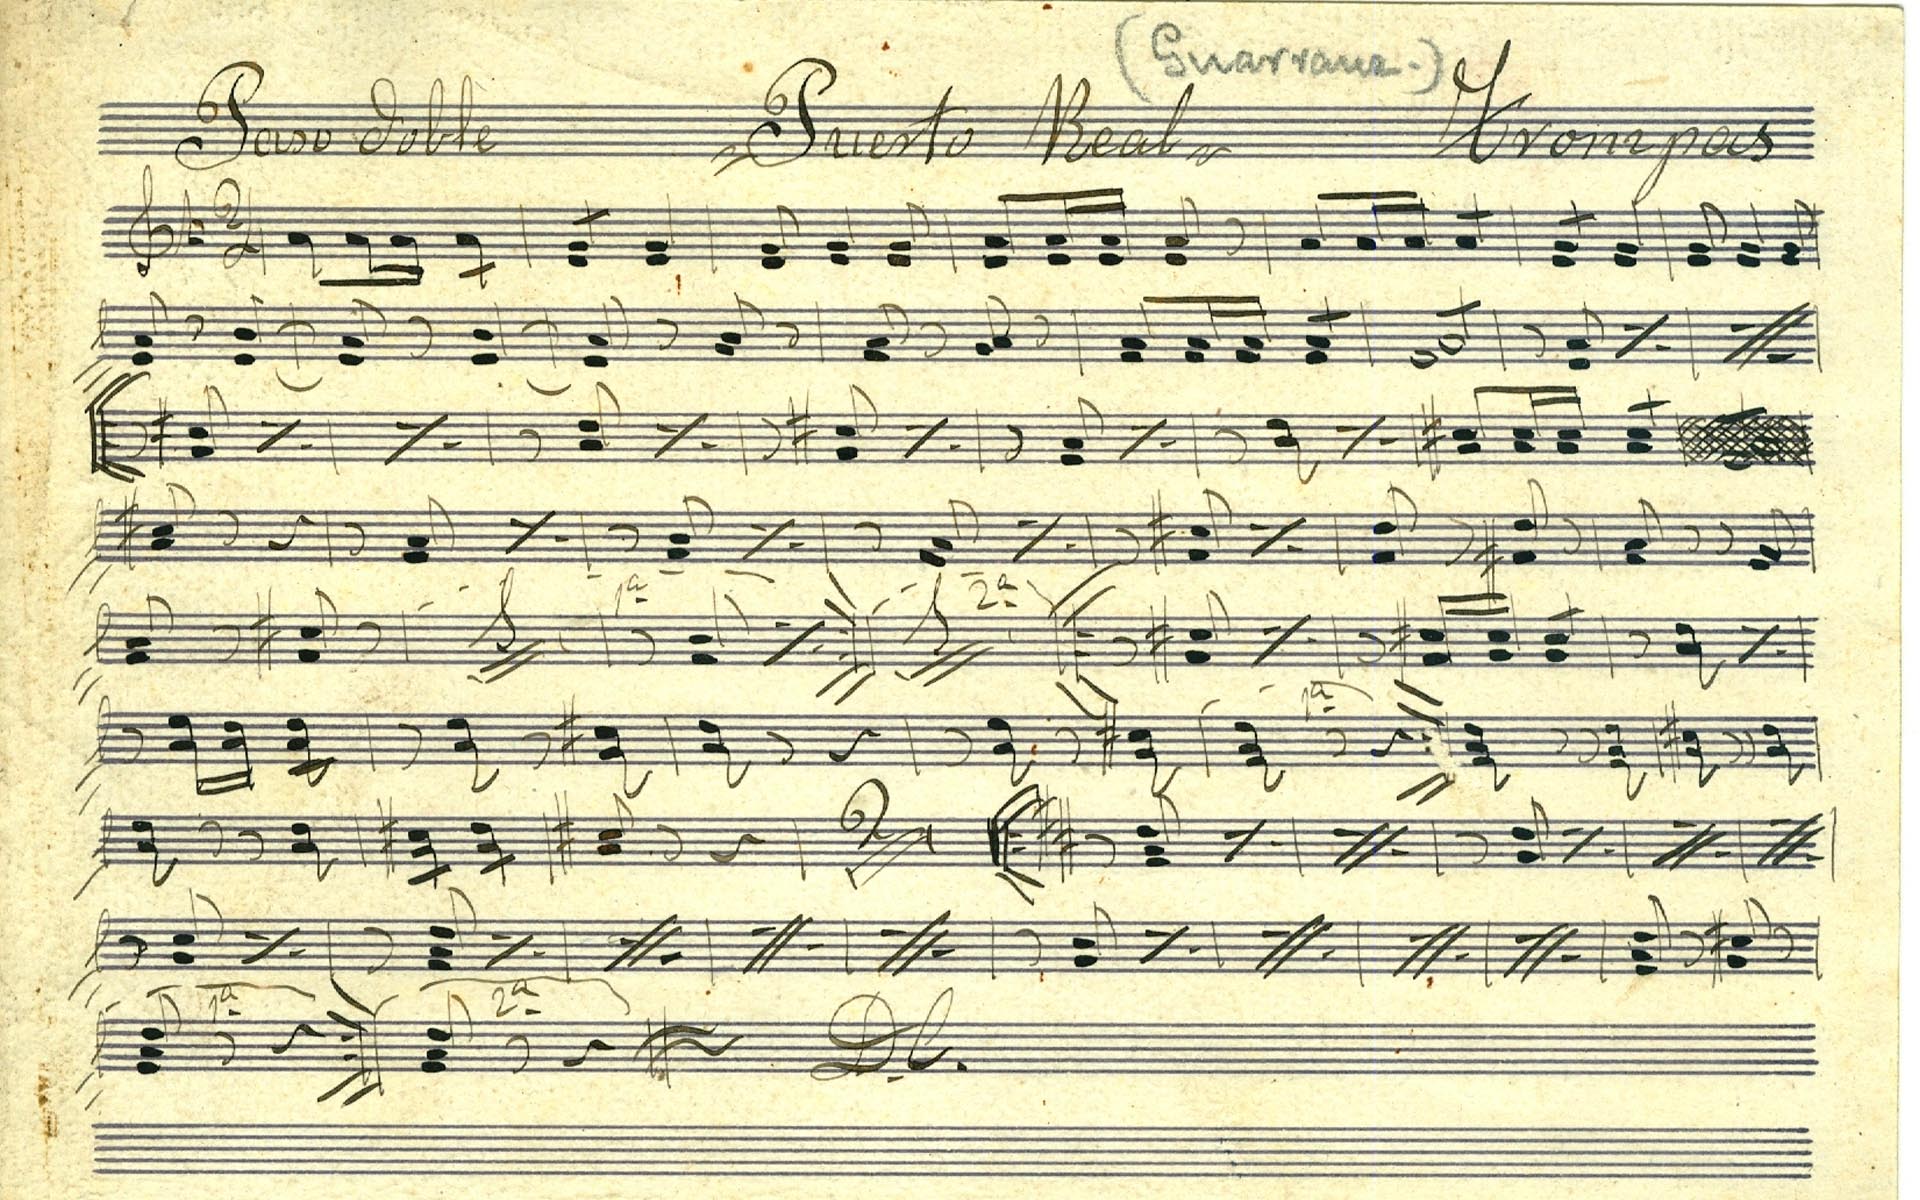 Paso doble "Puerto Real" Trompas
1ª 2ª
1ª
2
1ª 2ª D.C.